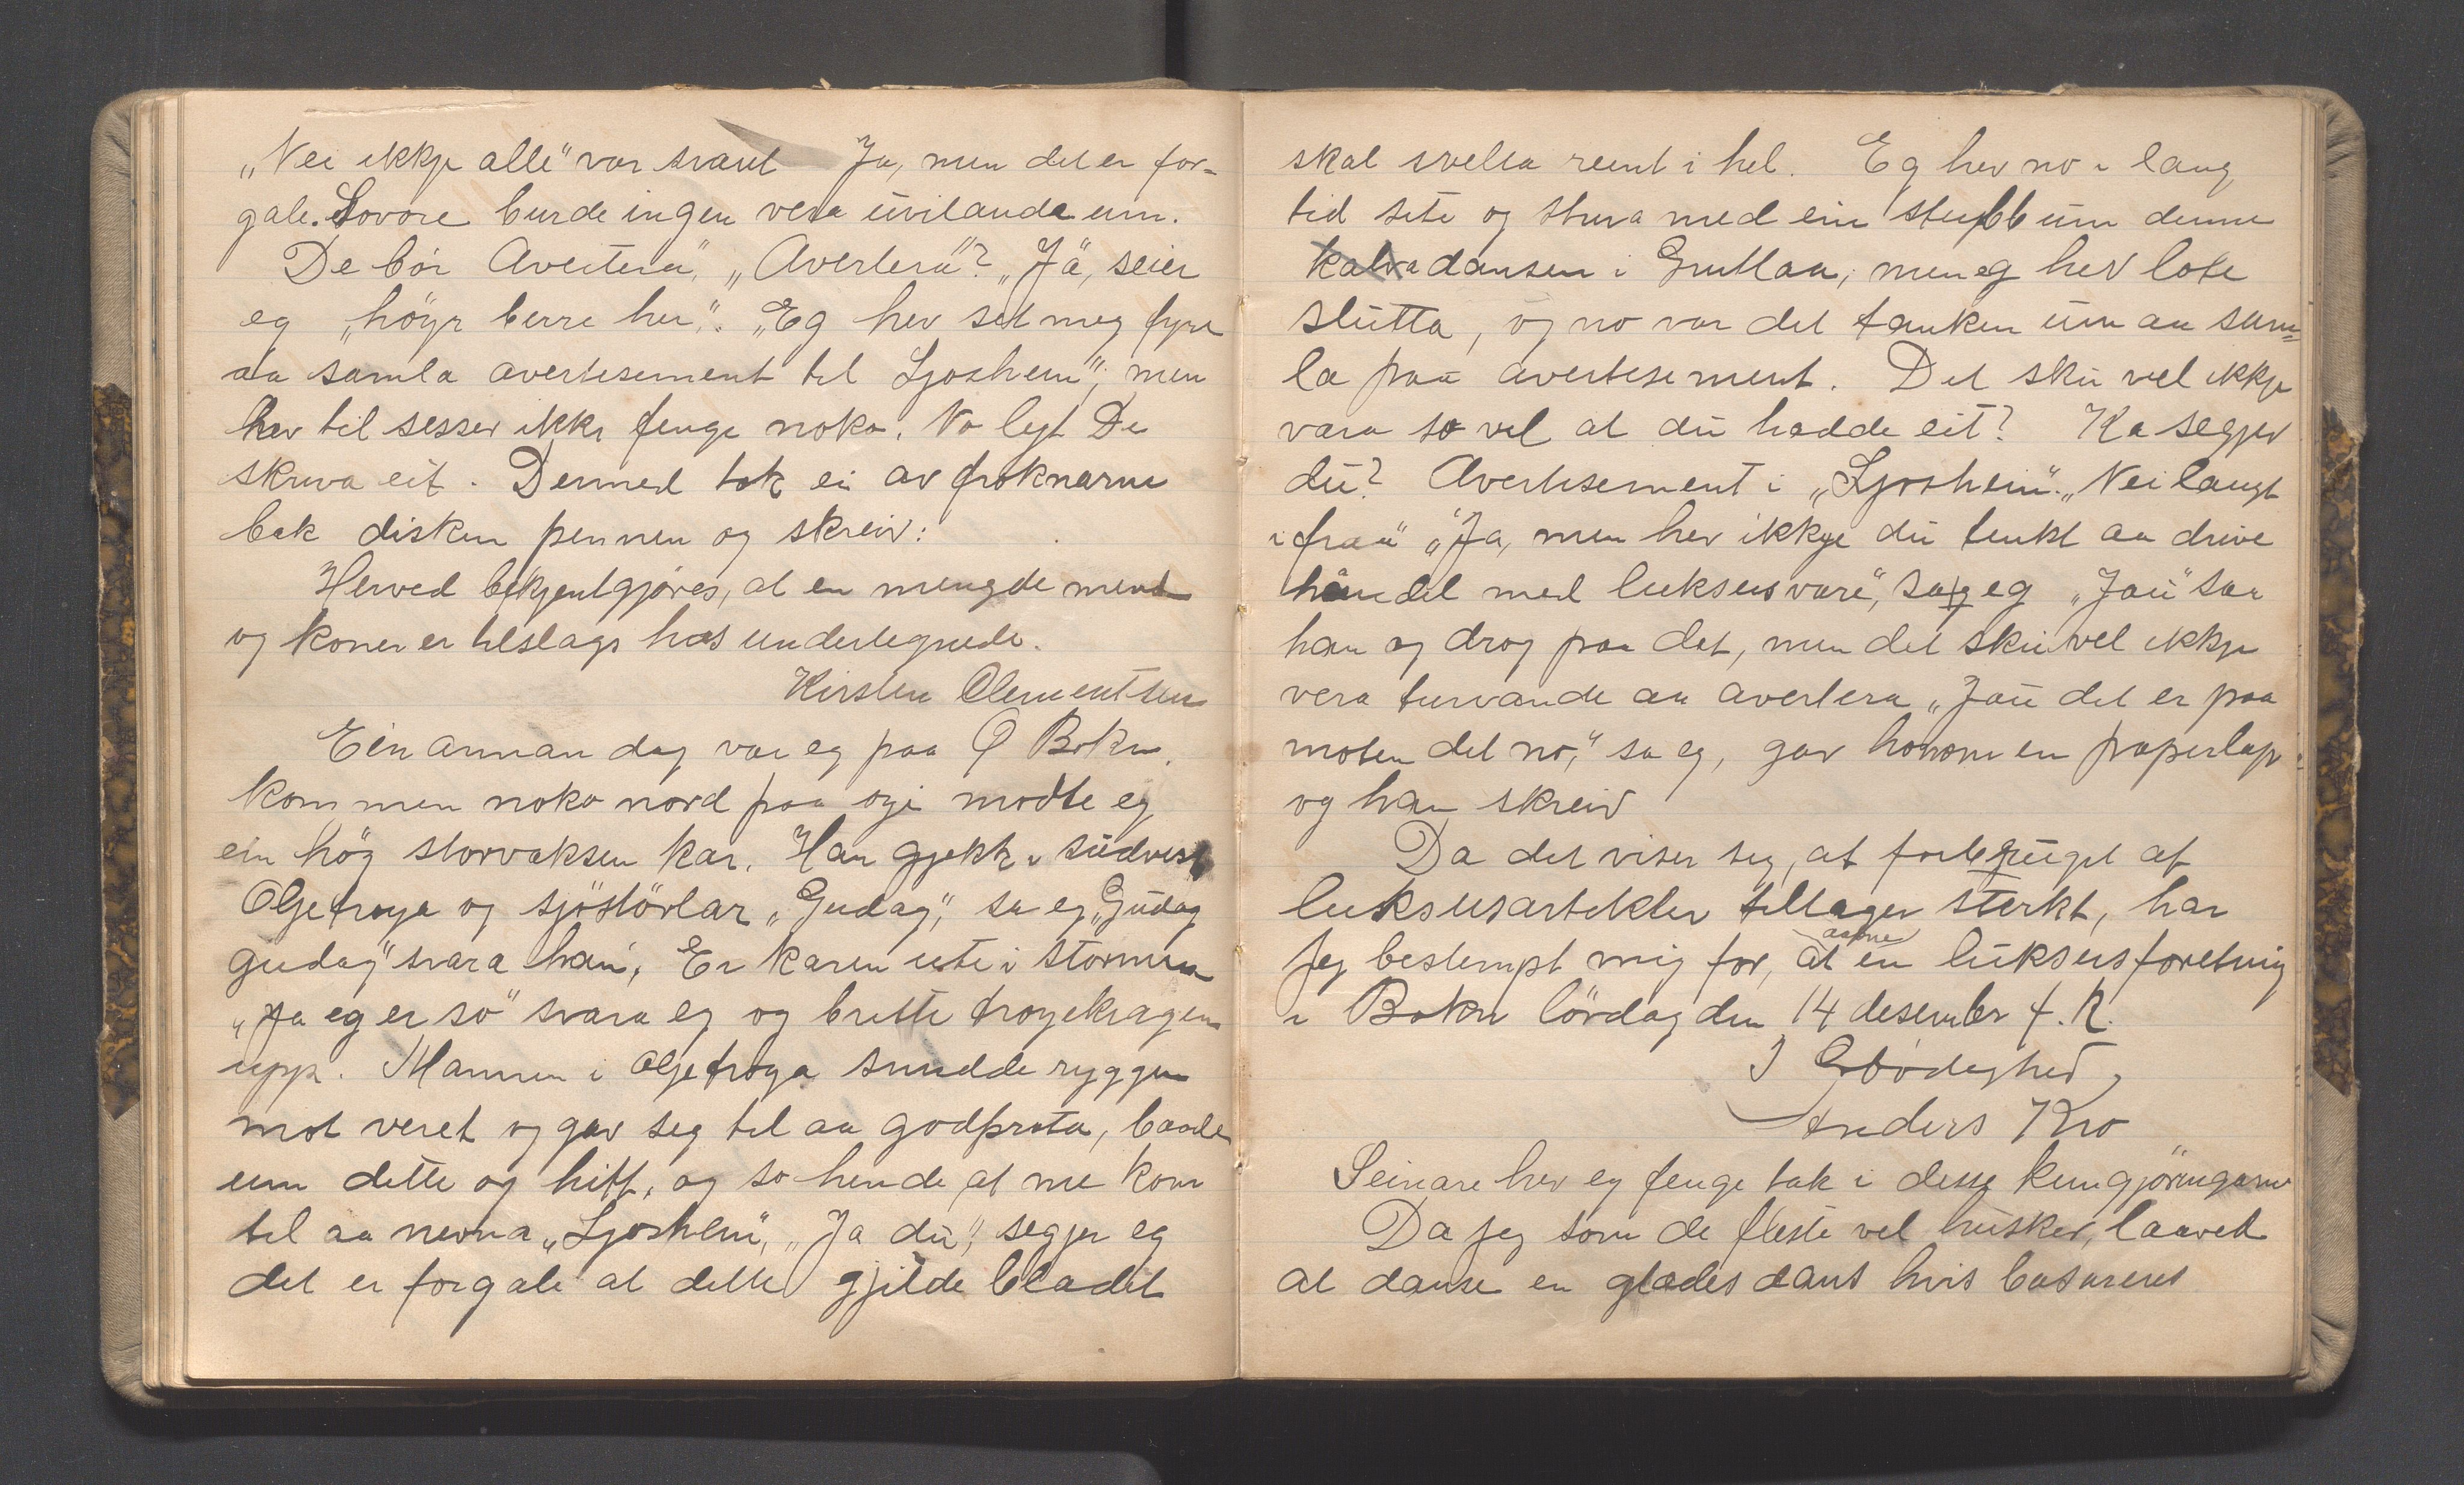 „Nei ikkje alle" var svaret Ja, men det er for-
gale. Sovore burde ingen vera uvitande um.
De bör Avertera", „Avertera"? „Jä, seier
eg „höyr berre her". „Eg hev set meg fyre
aa samla avertisement til Ljosheim", men
hev til sesser ikke fenge noko. No lyt De
skriva eit. Dermed tok ei av frøknarne
bak disken pennen og skreiv:
Herved bekjentgjøres, at en mengde mend
og koner er tilslags hos undertegnede.
Kirsten Clementsen
Ein annan dag var eg paa Ø Bokn.
kommen noko nord paa øyi møtte eg
ein hög storvaksen kar. Han gjekk i südvest
Oljetrøya og sjöstövlar „Gudag", sa eg „Gudag
gudag" svara han, Er karen ute i stormen
„Ja eg er so" svara eg og brette trøyekragen
upp. Mannen i oljetrøya snudde ryggen
mot veret og gav seg til aa godprata, baade
um dette og hitt, og so hende at me kom
til aa nevna „Ljosheim", „Ja du", segjer eg
det er forgale at dette gjilde bladet
skal svelta reint i hel. Eg hev no i lang
tid sete og stuva med ein stubb um denne
kalvadansen i Gruttaa, men eg hev lote
slutta, og no var det tanken um aa sam=
la paa avertisement. Det sku vel ikkje
vara so vel at du hadde eit? Ka segjer
du? Avertisement i „Ljosheim". „Nei langt
ifraa" „Ja, men hev ikkje du tenkt aa drive
handel med luksusvare", sa eg „Jau" saa
han og drog paa det, men det sku vel ikkje
vera turvande aa avertera „Jau det er paa
moten det no," sa eg, gav honom en paperlap
og han skreiv
Da det viser seg, at forbruget af
luksusartikler tiltager sterkt, har
Jeg bestempt mig for, at aapne en luksusforetning
i Bokn lördag den 14 desember f. k.
I Erbödighed,
Anders Kro
Seinare hev eg fenge tak i desse kungjöringarne
Da jeg som de fleste vel husker, laaved
at danse en glædes dans hvis basarens